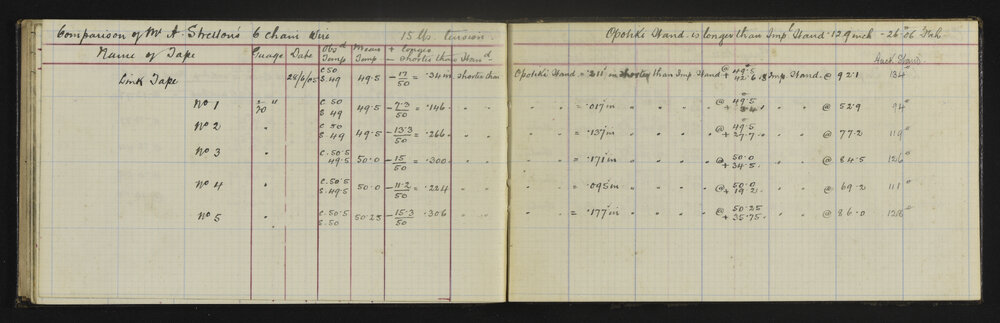 Comparison of Mr A. Strellon's 6 chain Tire 15 lb. tension.
Opotiki Stand. is longer than Imp Stand .129 inch - 26.06 Fah
Name of Tape Guage Date Obsd Temp Mean Temp + longer - shorter than Stand.
Auck Stand.
Link Tape 28/6/05 C. 50 S. 49 49.5 - 17/50 = .34 in shorter than Opotiki Stand = .211 in shorter than Imp Stand @ 49.5 + 42.6 Imp. Stand. @ 92.1 134°
No 1 " C. 50 S 49 49.5 - 7.3/50 = .146 " " " " = .017 in " " " @ 49.5 + 3.4 " " @ 52.9 94°
No 2 " C 50 S. 49 49.5 - 13.3/50 = .266 " " " " = .137 in " " " @ 49.5 + 27.7 " " @ 77.2 119°
No 3 " C. 50.5 49.5 50.0 - 15/50 = .300 " " " " = .171 in " " " @ 50.0 + 34.5 " @ 84.5 126°
No 4 " C. 50.5 S. 49.5 50.0 - 11.2/50 = .224 " " " " = .095 in " " " @ 50.0 + 19.21 " @ 69.2 111°
No 5 " C. 50.5 S. 50 50.25 - 15.3/50 .306 " " " " = .177 in " " " @ 50.25 + 35.75 " @ 86.0 128°